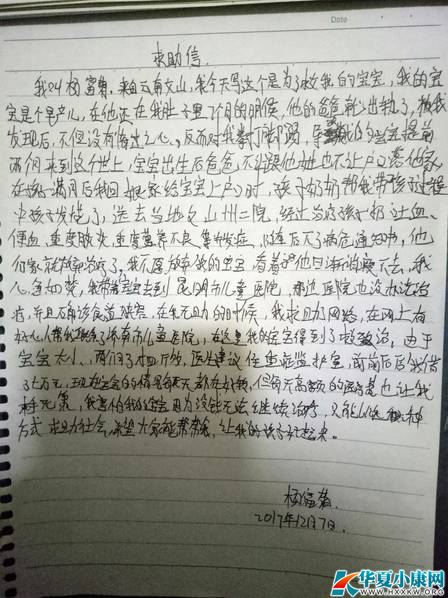 Date
求助信
我叫杨富菊,来自云南文山,我今天写这个是为了救我的宝宝,我的宝
宝是个早产儿,在他还在我肚子里7个月的时候,他的爸爸就出轨了,被我
发现后,不但没有悔过之心,反而对我拳打脚踢,导致我的宝宝提前
两个月来到这个世上,宝宝出生后爸爸不他也不让户口落他家,
在孩子满月后我回娘家给宝宝上户口时,孩子奶奶帮我带孩过程
中孩子发烧了,送去当地文山州二院,经过治疗孩子奶吐血、
便血,重度肺炎,重度营养不良,等并发症,随后下了病危通知书,他
们家就放弃治疗了,我不愿放弃我的宝宝,看着他日渐消瘦下去,我
心急如焚,我带着宝宝去到昆明市儿童医院,那边医院也没办法治
疗,并且不建议食道观察,在无助的时候,我求助网络,在网上有
好心人帮我联系了济南市儿童医院,在这里我的宝宝得到了救治,由于
宝宝太小,医生建议住重症监护室,前前后后我借
了七万元,现在宝宝的情况每天都在好转,但每天高额的医疗费也让我
我害怕我的宝宝因为没钱无法继续治疗,只能以这种
方式求助社会,希望大家能帮帮我,让我的孩子好起来。
杨富菊
2017年12月7日.
华夏小康网
WWW.HXXKW.ORG